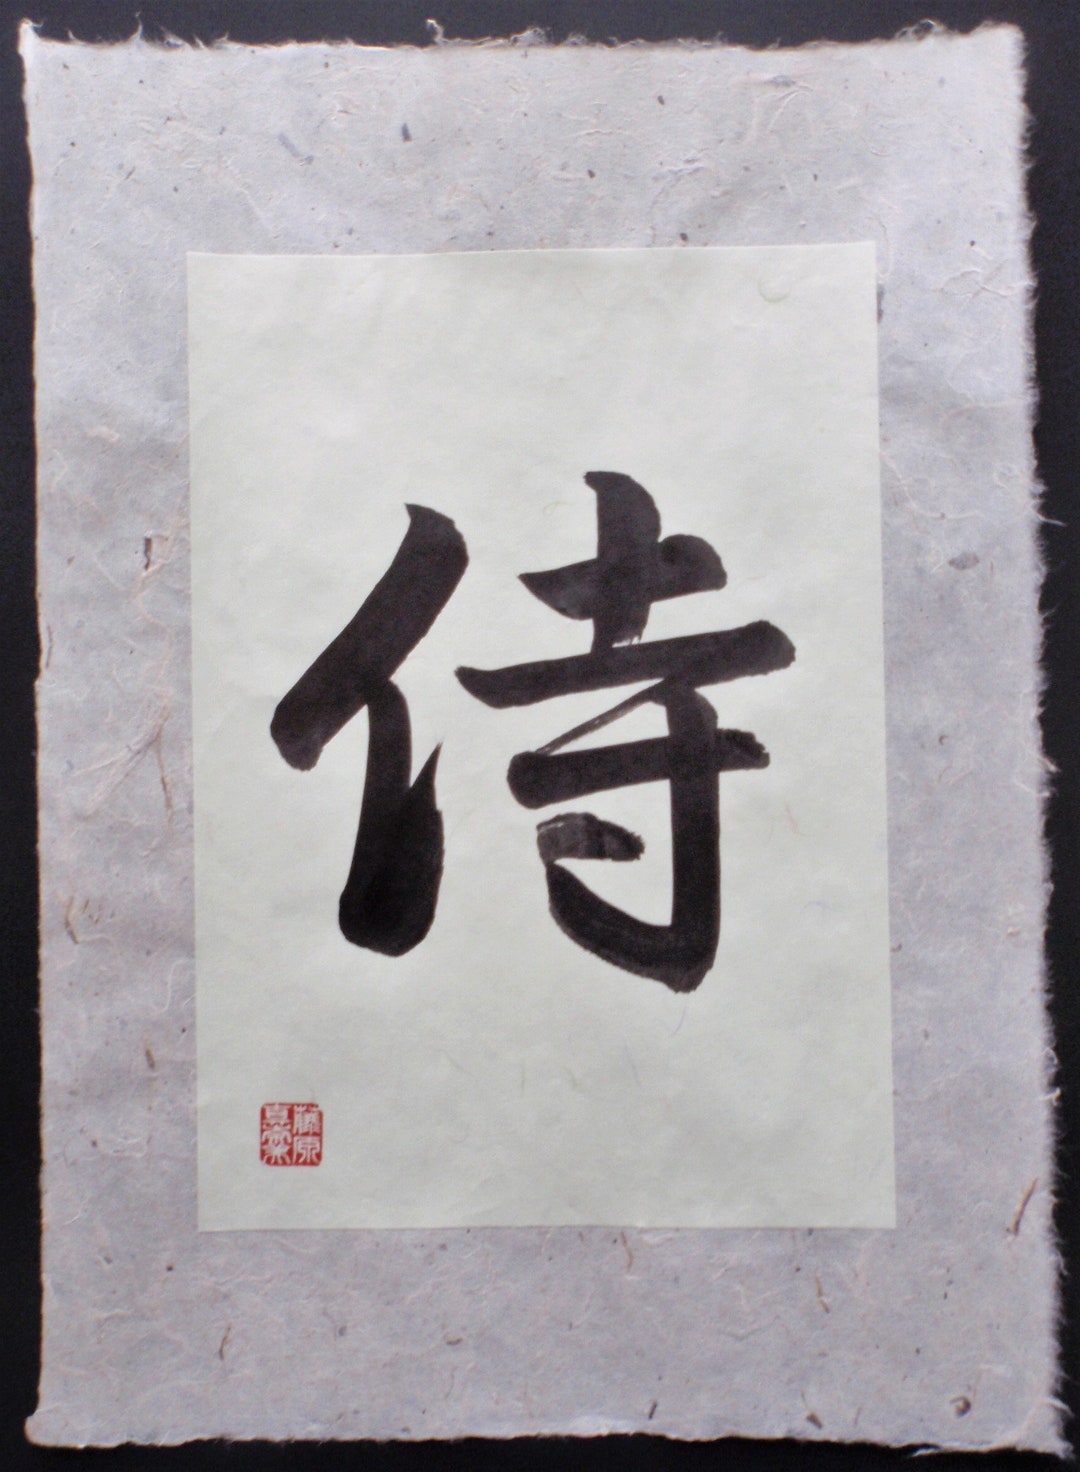 侍
藤原